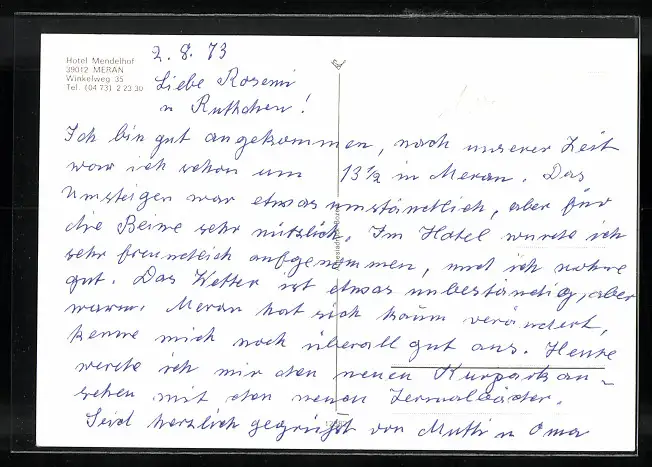 Hotel Mendelhof
39012 MERAN
Winkelweg 35
Tel. (04 73) 2 23 30
2. 8. 73
Liebe Rosemi
u Ruthchen!
Ich bin gut angekommen, nach unserer Zeit
war ich schon um 13½ in Meran. Das
Umsteigen war etwas umständlich, aber für
die Beine sehr nützlich. Im Hotel wurde ich
sehr freundlich aufgenommen, und ich wohne
gut. Das Wetter ist etwas unbeständig, aber
warm. Meran hat sich kaum verändert,
kenne mich noch überall gut aus. Heute
werde ich mir den neuen Kurpark an-
sehen mit den neuen Termalbäder.
Seid herzlich gegrüßt von Mutti u Oma